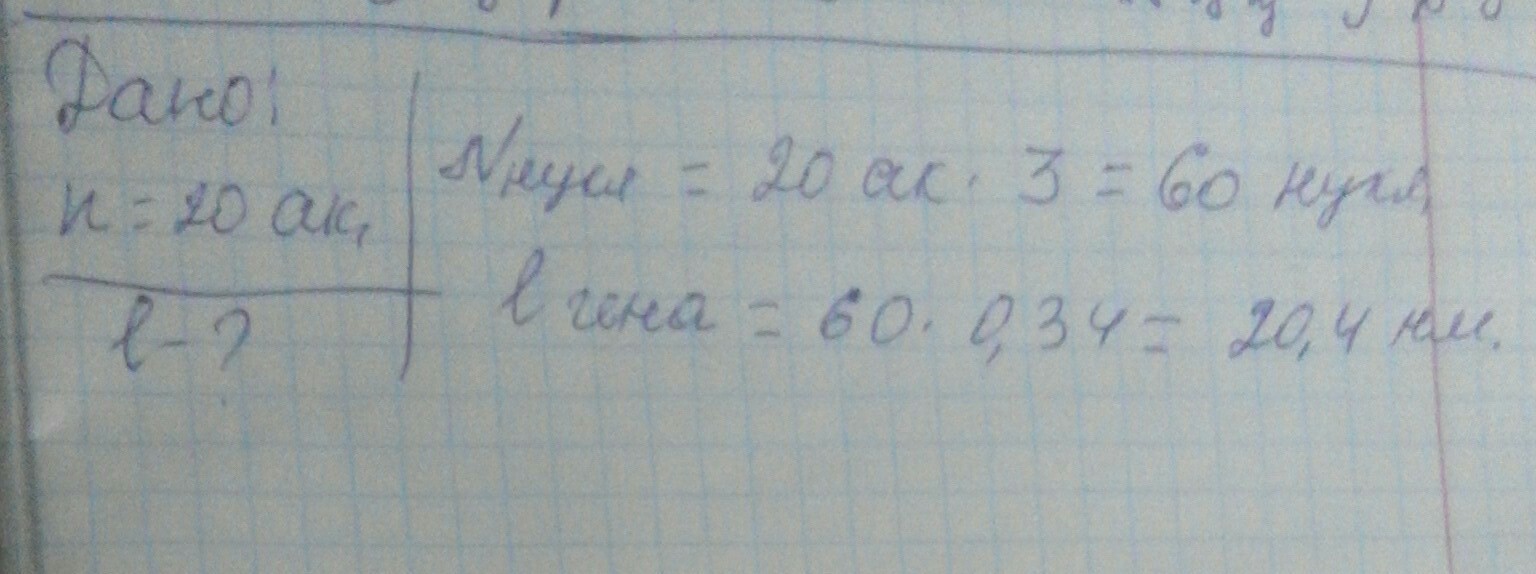 Дано:
n = 20 ак,
l - ?
Nнукл = 20 ак · 3 = 60 нукл,
l гена = 60 · 0,34 = 20,4 нм.